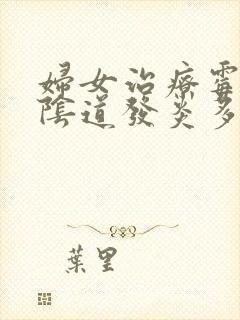 婦女治療霉
陰道發炎多
葉里